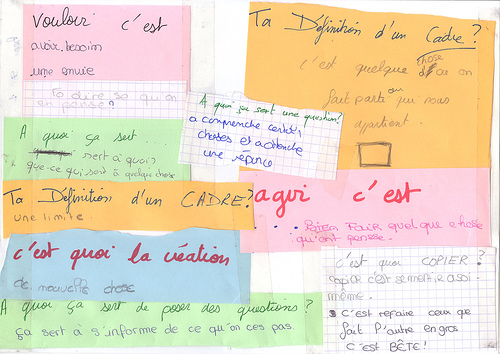 Vouloir c'est
avoir besoin
une envie
To dire se qu'on
en pense?
Ta Définition d'un Cadre?
c'est quelque chose
ou on
fait partie ou qui nous
appartient.
A quoi sa sert une question?
a comprendre certain
choses et a attendre
une réponse
A quoi ça sert
sert a quoi?
que-ce qui sert à quelque chose
Ta Définition d'un CADRE?
une limite.
agir c'est
Bien Fair quelque chose
qu'ont pense.
c'est quoi la création
de nouvelle chose
c'est quoi COPIER?
copier c'est se mentir a soi-
même.
c'est refaire ceux que
fait l'autre en gros
c'est BÊTE!
A quoi ça sert de poser des questions?
ça sert à s'informe de ce qu'on ces pas.